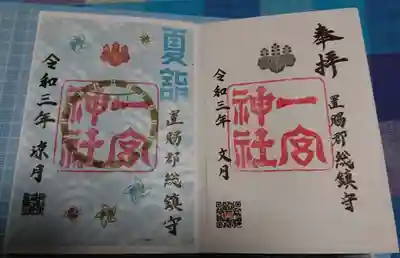 奉拝
一宮
神社
置賜郡総鎮守
令和三年 文月
夏詣
一宮
神社
置賜郡総鎮守
令和三年 涼月